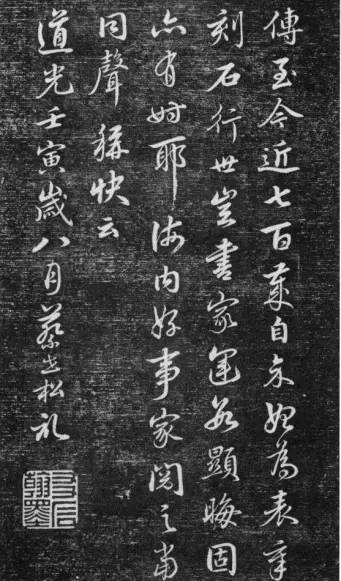 傳至今近七百自余始為表章
刻石行世豈書家運數顯晦固
亦有時耶海内好事家閱之當
同聲稱快云
道光壬寅歲八月蔡世松記
友石翰墨